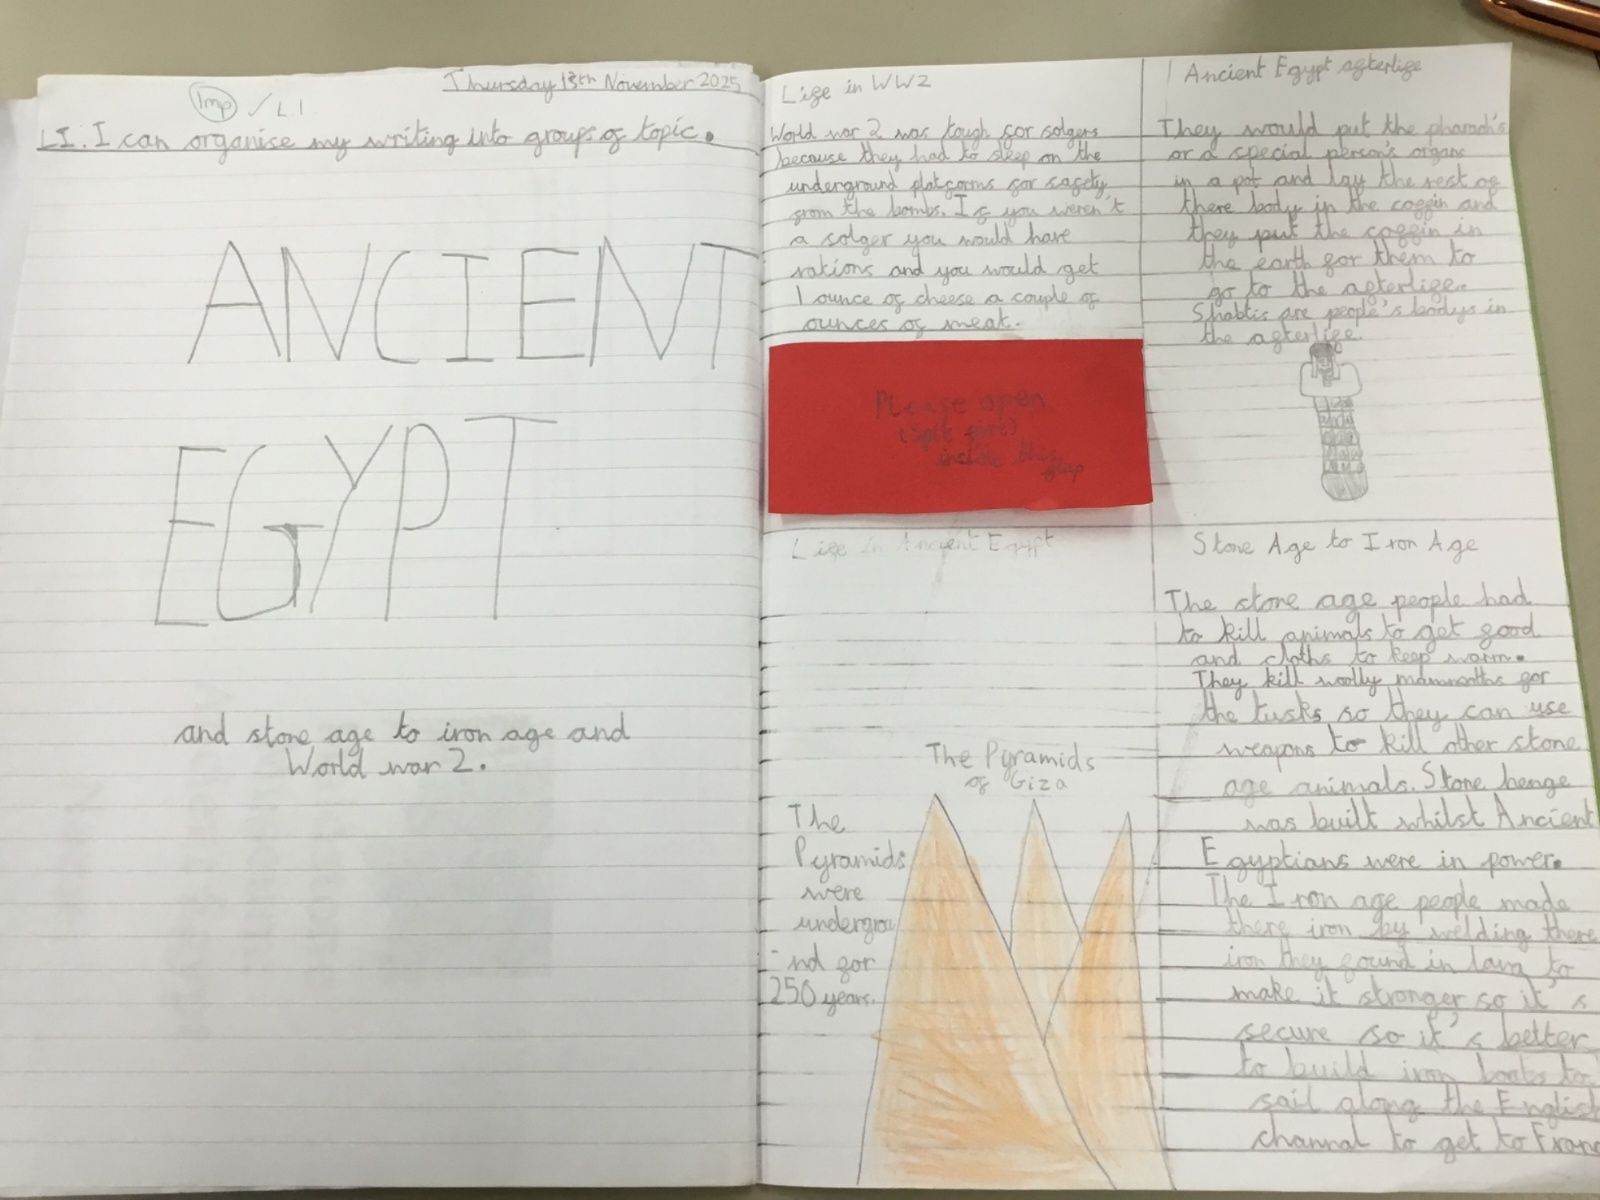 Thursday 13th November 2025
Imp ✓ L.I
LI: I can organise my writing into groups of topic.
ANCIENT
EGYPT
and stone age to iron age and
World war 2.
Life in WW2
World war 2 was tough for solgers
because they had to sleep on the
underground platforms for safety
from the bombs. If you weren't
a solger you would have
rations and you would get
1 ounce of cheese a couple of
ounces of meat.
Please open
(Spit fire)
inside this
flap
Life in Ancient Egypt
The Pyramids
of Giza
The
Pyramids
were
undergrou
-nd for
250 years.
Ancient Egypt afterlife
They would put the pharaoh's
or a special person's organs
in a pot and lay the rest of
there body in the coffin and
they put the coffin in
the earth for them to
go to the afterlife.
Shabtis are people's bodys in
the afterlife.
Stone Age to Iron Age
The stone age people had
to kill animals to get food
and cloths to keep warm.
They kill woolly mammoths for
the tusks so they can use
weapons to kill other stone
age animals. Stone henge
was built whilst Ancient
Egyptians were in power.
The Iron age people made
there iron by welding there
iron they found in lava to
make it stronger so it's
secure so it's better
to build iron boats to
sail along the English
channal to get to Franc